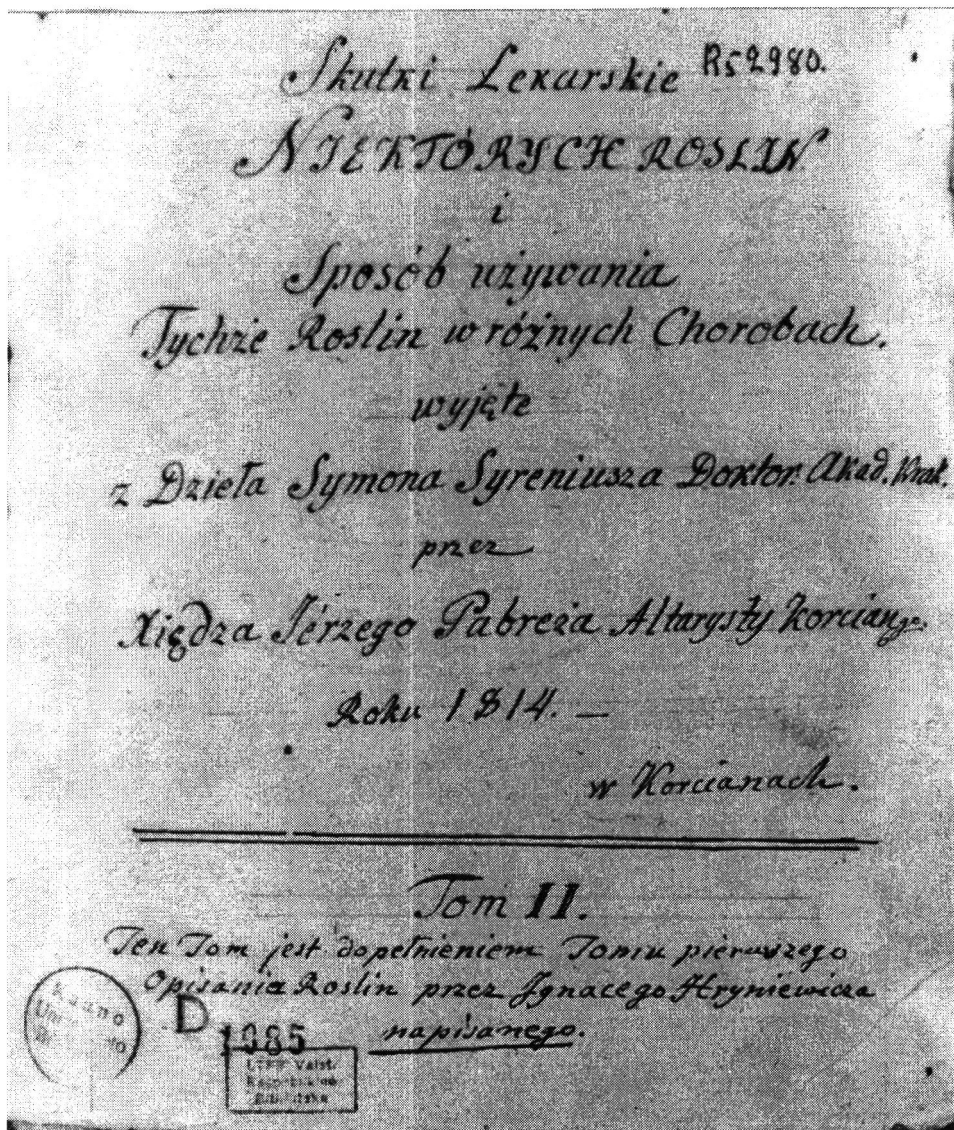 Skutki Lekarskie Rs 2980.
NIEKTÓRYCH ROSLIN
i
Sposób używania
Tychże Roslin w różnych Chorobach.
wyjęte
z Dzieła Symona Syreniusza Doktor. Akad. Krak.
przez
Xiędza Jérzego Pabreża Altarysty Korciang.
Roku 1814. —
w Korcianach.
Tom II.
Ten Tom jest dopełnieniem Tomu pierwszego
Opisania Roslin przez Jgnacego Hryniewicza
napisanego.
Kauno
D
1985
LTSR Valst.